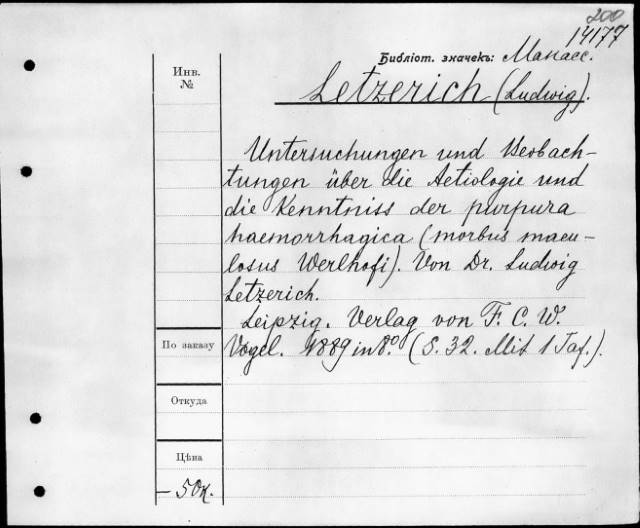 200
14177
Библіот. значекъ: Манасс.
Инв.
№
Letzerich (Ludwig).
Untersuchungen und Beobach-
tungen über die Aetiologie und
die Kenntniss der purpura
haemorrhagica (morbus macu-
losus Werlhofi). Von Dr. Ludwig
Letzerich.
Leipzig. Verlag von F. C. W.
По заказу
Vogel. 1889 in 8º. (S. 32. Mit 1 Taf.).
Откуда
Цѣна
– 50к.